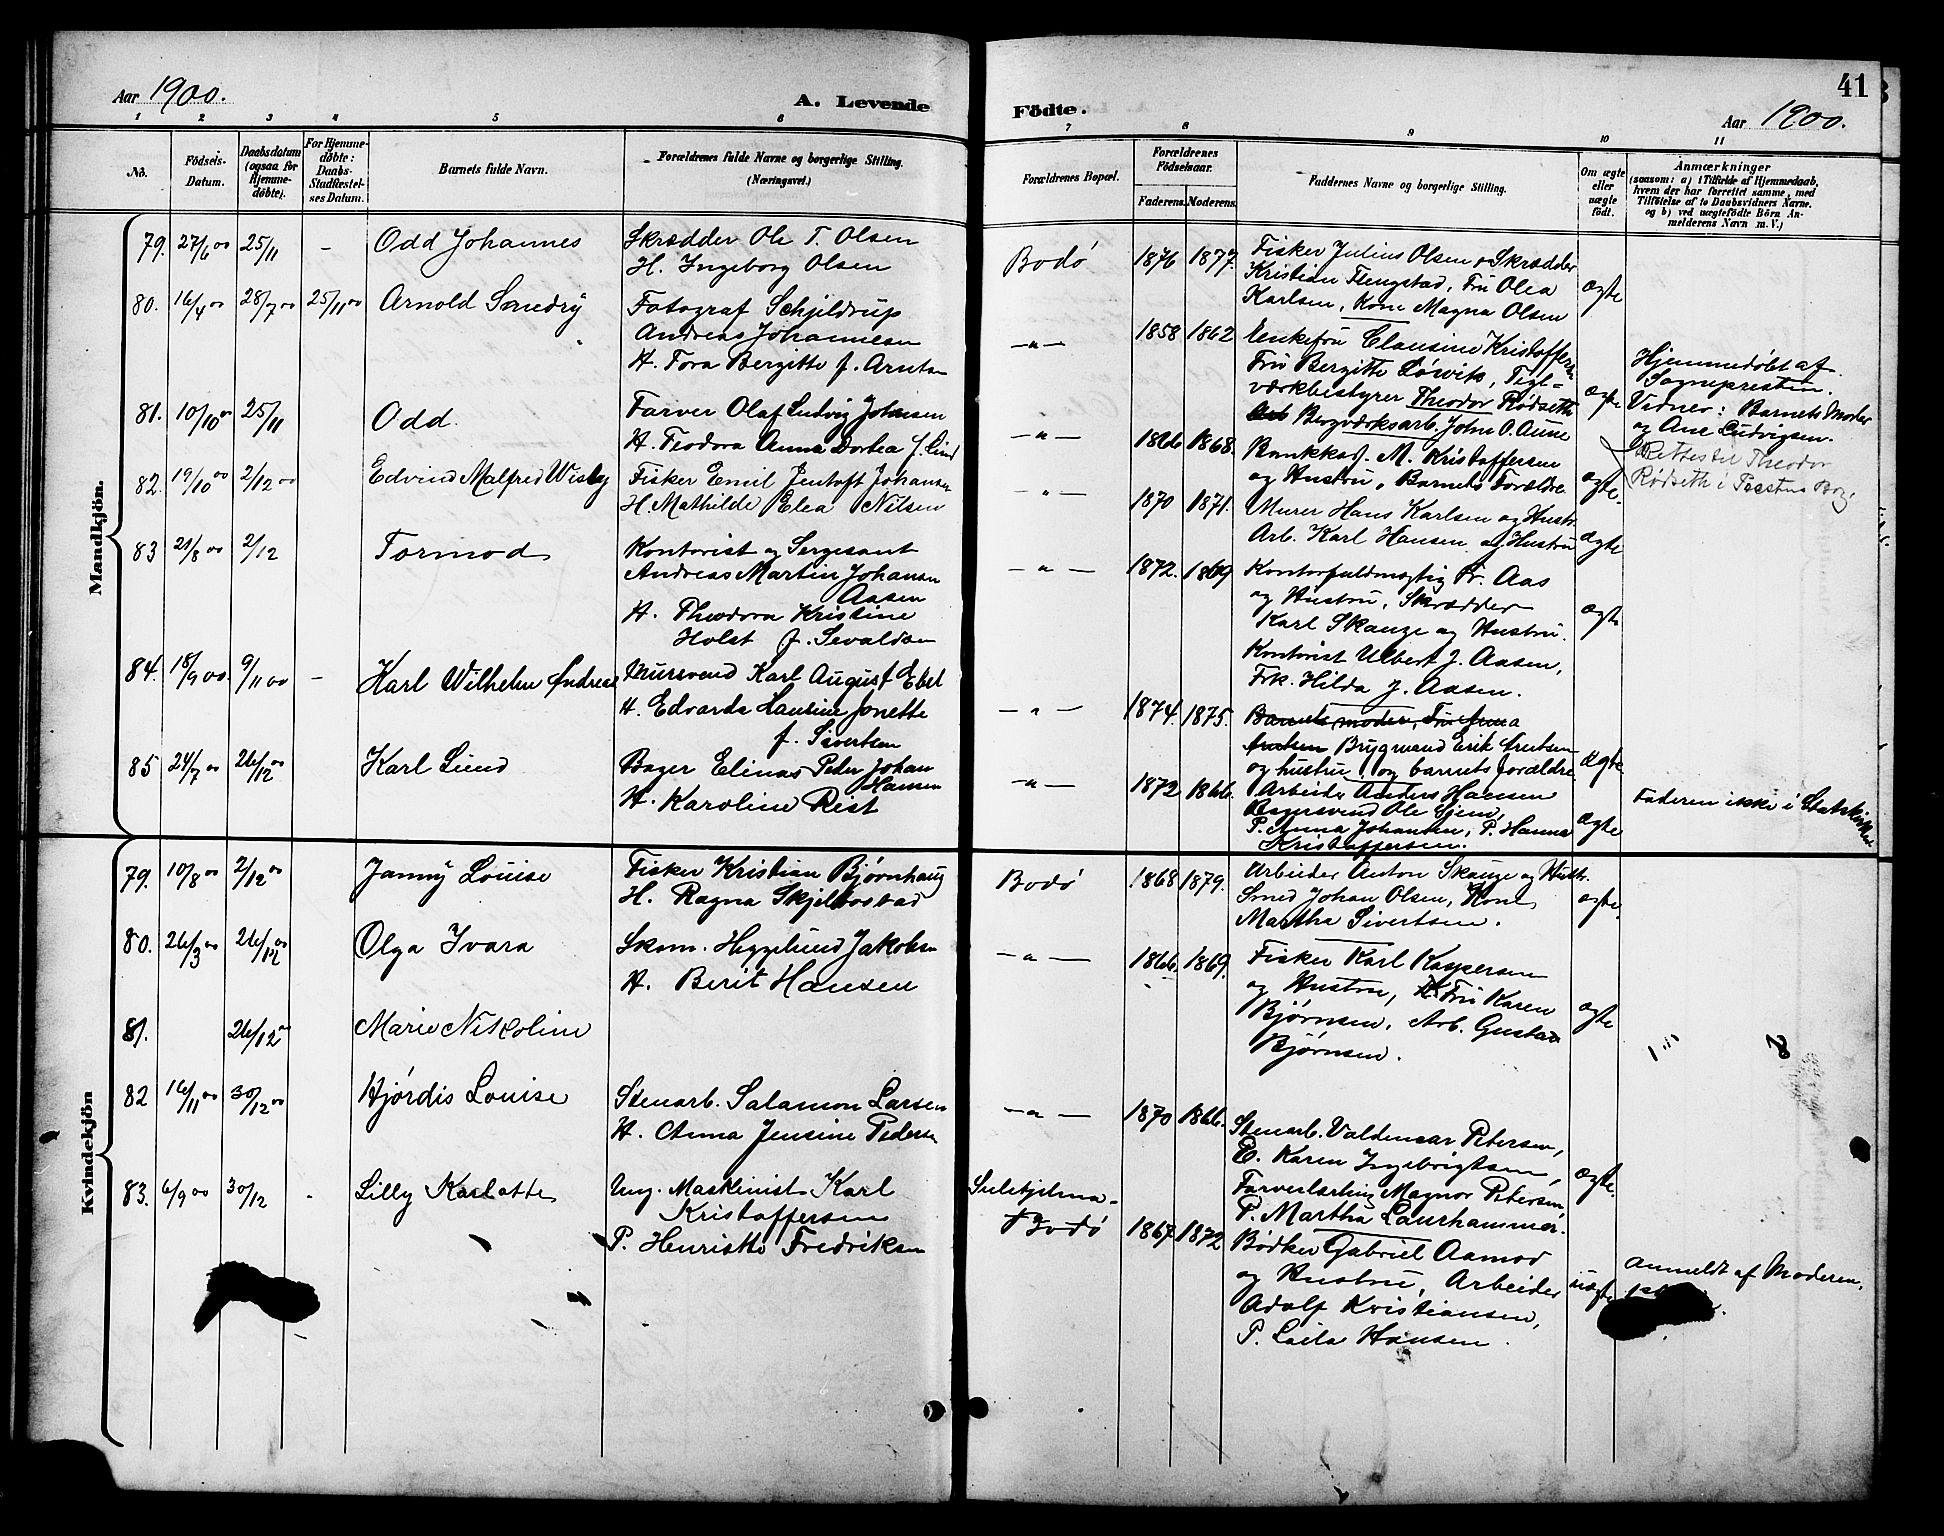 Aar 1900.
A. Levende
Födte.
Aar 1900.
41
1 2 3 4 5 6 7 8 9 10 11
No.
Födsels-
Datum.
Daabsdatum
(ogsaa for
Hjemme-
døbte).
For Hjemme-
døbte:
Daabs-
Stadfæstel-
ses Datum.
Barnets fulde Navn.
Forældrenes fulde Navne og borgerlige Stilling.
(Næringsvei.)
Forældrenes Bopæl.
Forældrenes
Födselsaar.
Faderens. Moderens.
Faddernes Navne og borgerlige Stilling.
Om ægte
eller
uægte
født.
Anmærkninger
(saasom: a) i Tilfælde af Hjemmedaab,
hvem der har forrettet samme, med
Tilföielse af to Daabsvidners Navne.
og b) ved uægtefödte Börn An-
melderens Navn m. V.)
Mandkjön.
79. 27/6 00 25/11 - Odd Johannes
Skrædder Ole T. Olsen
H. Ingeborg Olsen
Bodø 1876 1877.
Fisker Julius Olsen, Skrædder
Kristian Flengstad, Fru Olea
Karlsen, Kone Magna Olsen
ægte
80. 16/4 00 28/7 00 25/11 00 Arnold Smedry
Fotograf Schjeldrup
Andreas Johannesen
H. Tora Bergitte f. Arntsen
-"- 1858 1862
Enkefru Clausine Kristoffersen
Fru Bergitte Løwik, Tegl-
værkbestyrer Theodor Rødseth
Bergværksarb. John O. Aune
ægte
Hjemmedøbt af
Sognepresten.
Vidner: Barnets Moder
og Ane Ludvigsen.
Rettes til Theodor
Rødseth i
81. 10/10 00 25/11 Odd.
Farver Olaf Ludvig Johnsen
H. Teodora Anna Dortea f. Lind
-"- 1866 1868.
Bankkas. M. Kristoffersen
og Hustru, Barnets Forældre.
ægte.
82. 19/10 00 2/12 00 Edvind Malfred Wisby
Fisker Emil Jentoft Johansen
H. Mathilde Elea Nilsen
-"- 1870 1871.
Murer Hans Karlsen og Hustr.
Arb. Karl Hansen og Hustru
ægte
83 21/8 00 2/12 Tormod
Kontorist og Sergeant
Andreas Martin Johansen
Aasen
H. Theodora Kristine
Holst f. Sevaldsen
-"- 1872. 1869
Kontorfuldmægtig Fr. Aas
og Hustru, Skrædder
Karl Skauge og Hustru.
Kontorist Albert J. Aasen,
Frk. Hilda J. Aasen.
ægte
84. 18/9 00. 9/11 00 - Karl Wilhelm Andreas
Mursvend Karl August Ebel
H. Edvarda Hansine Jonette
f. Sivertsen
-"- 1874. 1875.
Barnets moder, Fru Anna
Brygmand Erik Arntsen
og hustru, og barnets forældre
ægte
85 24/7 00 26/12 00 Karl Lund
Bager Elinas Peder Johan
Hansen
H. Karoline Rist
-"- 1872 1866.
Arbeider Anders Hansen
Bagersvend Ole Gjem,
P. Anna Johansen, P. Hanna
Kristoffersen.
ægte
Faderen ikke i Statskirken
Kvindekjön
79. 10/8 00 2/12 00 Janny Louise
Fisker Kristian Bjørnhaug
H. Ragna Skjelbostad
Bodø 1868 1879.
Arbeider Anton Skauge og Hustr.
Smed Johan Olsen, Kone
Martha Sivertsen.
ægte.
80. 26/3 00 26/12 00 Olga Ivara
Skom. Heggelund Jakobsen
H. Berit Hansen
-"- 1866. 1869.
Fisker Karl Kaspersen
og Hustru, Fru Karen
Bjørnsen, Arb. Gustav
Bjørnsen.
ægte
81. 26/12 Marie Nikoline
82 16/11 00 30/12 00 Hjørdis Louise
Stenarb. Salamon Larsen
H. Anna Jensine Pedersen
-"- 1870 1866.
Stenarb. Valdemar Petersen,
E. Karen Ingebrigtsen,
Farverlærling Magnor Petersen,
P. Martha Laurhammer.
ægte.
83. 6/9 00 30/12 - Lilly Karlotte
Ung. Maskinist Karl
Kristoffersen
P. Henriette Fredriksen
Sulitjelma-
Bodø 1867. 1872
Bødker Gabriel Aamod
og Hustru, Arbeider
Adolf Kristiansen,
P. Laila Hansen.
uægte
anmeldt af Moderen.